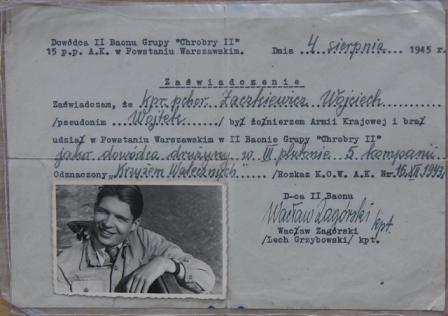 Dowódca II Baonu Grupy "Chrobry II"
15 p.p. A.K. w Powstaniu Warszawskim. Dnia 4 sierpnia 1945 r.
Zaświadczenie
Zaświadczam, że kpr. pchor. Zaczkiewicz Wojciech
/pseudonim Wojtek / był żołnierzem Armii Krajowej i brał
udział w Powstaniu Warszawskim w II Baonie Grupy "Chrobry II"
jako dowódca drużyny w III plutonie 5 kompanii
Odznaczony "Krzyżem Walecznych" /Rozkaz K.O.W. A.K. Nr.
D-ca II Baonu
Wacław Zagórski kpt.
Wacław Zagórski
/Lech Grzybowski/ kpt.